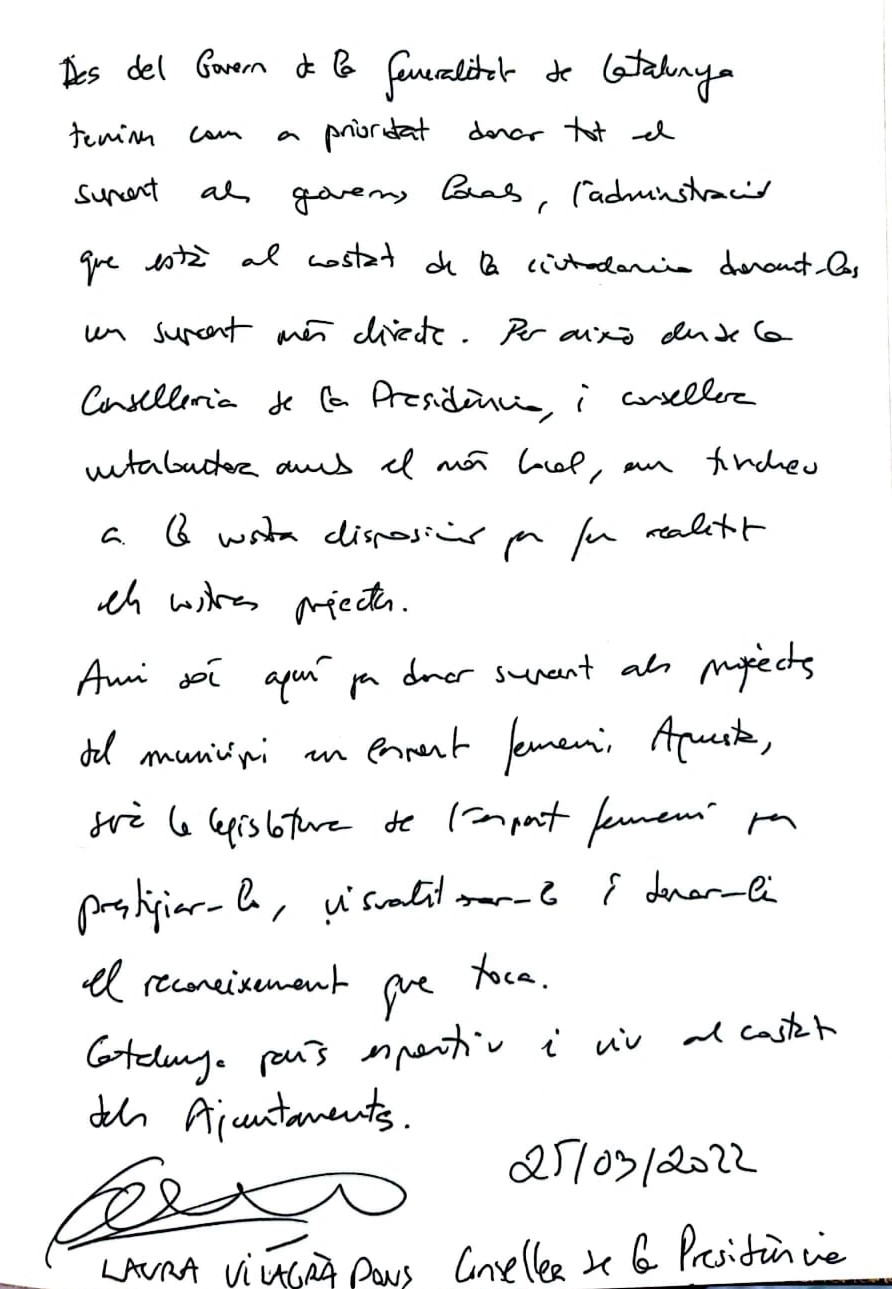 Des del Govern de la Generalitat de Catalunya
tenim com a prioritat donar tot el
suport als governs locals, l'administració
que està al costat de la ciutadania donant-los
un suport més directe. Per això des de la
Conselleria de la Presidència, i consellera
interlocutora amb el món local, em tindreu
a la vostra disposició per fer realitat
els vostres projectes.
Avui sóc aquí per donar suport als projectes
del municipi en esport femení. Aquesta,
serà la legislatura de l'esport femení per
prestigiar-lo, visualitzar-lo i donar-li
el reconeixement que toca.
Catalunya país esportiu i viu al costat
dels Ajuntaments.
25/03/2022
LAURA VILAGRÀ PONS Consellera de la Presidència